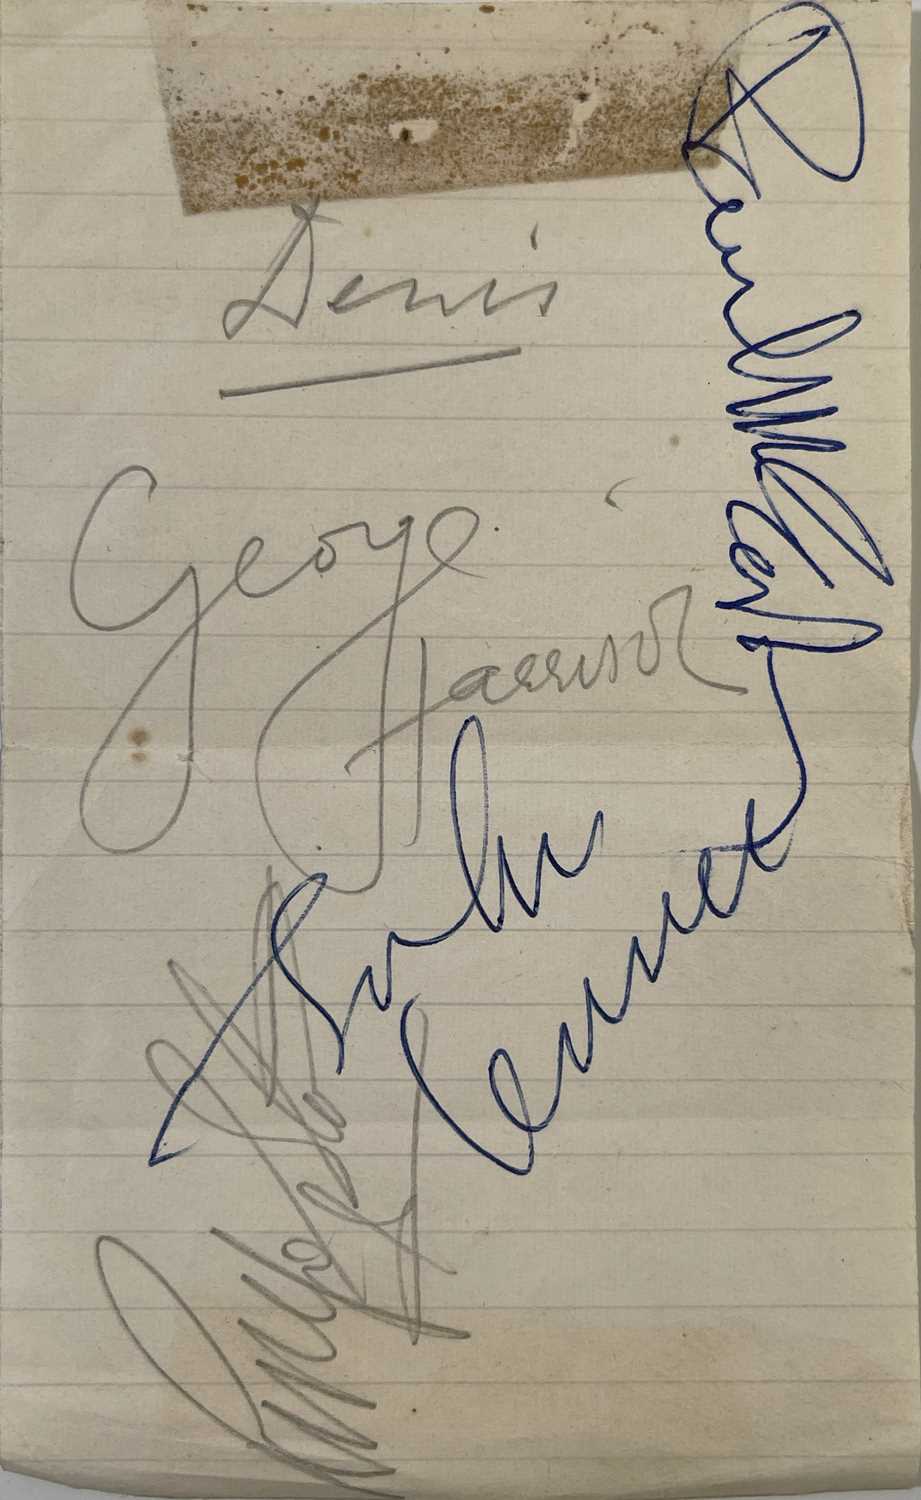 Denis
George
Harrison
Paul McCartney
John
Lennon